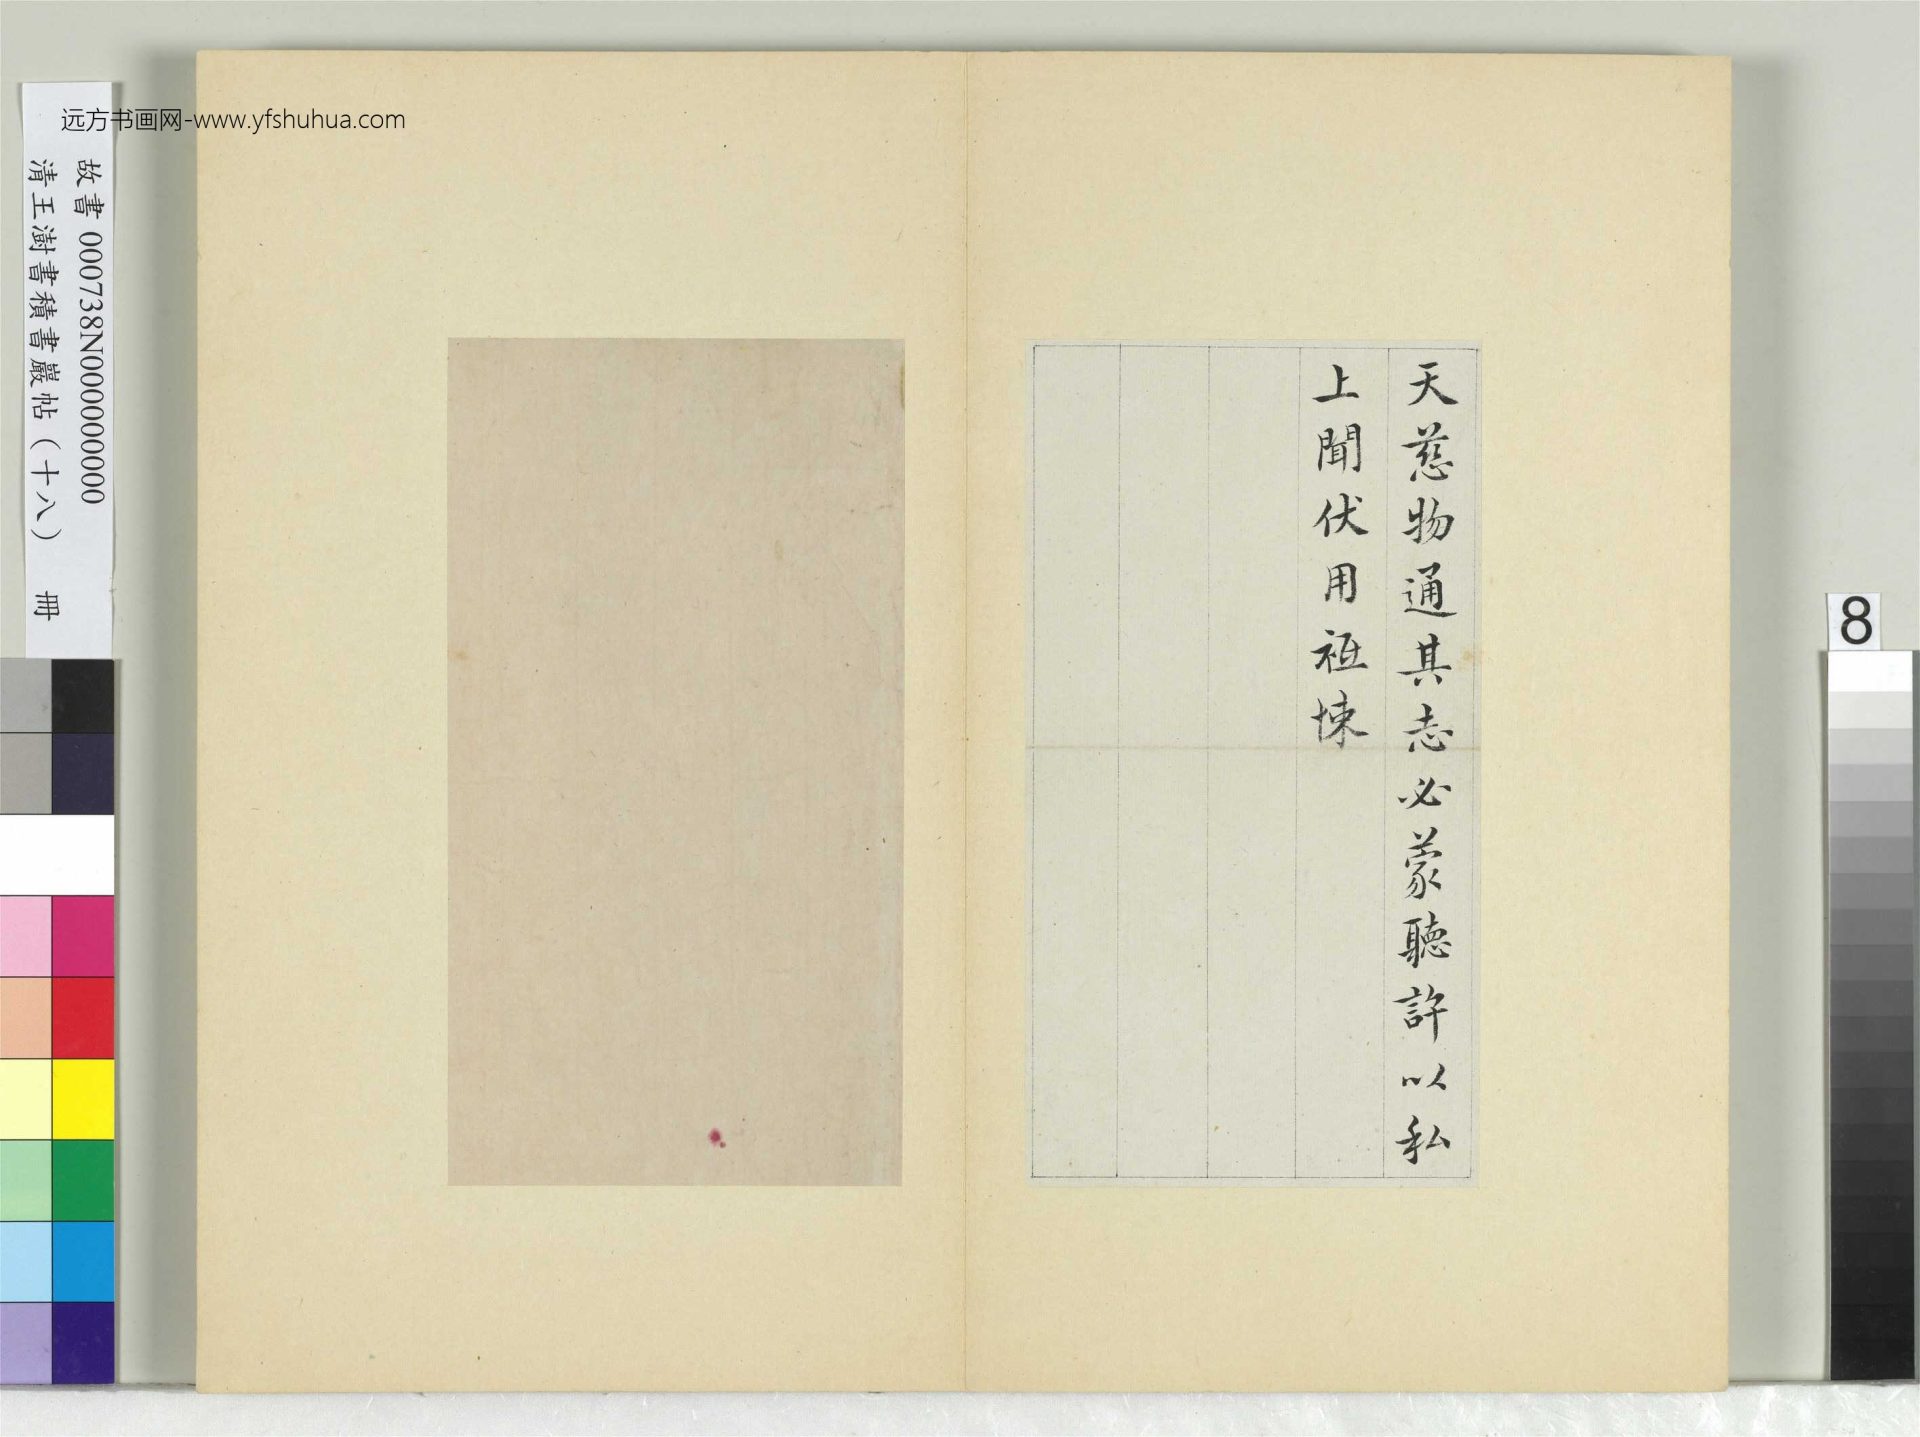 远方书画网-www.yfshuhua.com
故書 000738N000000000
清王澍書積書巖帖（十八） 冊
天慈物通其志必蒙聽許以私
上聞伏用祗悚
8